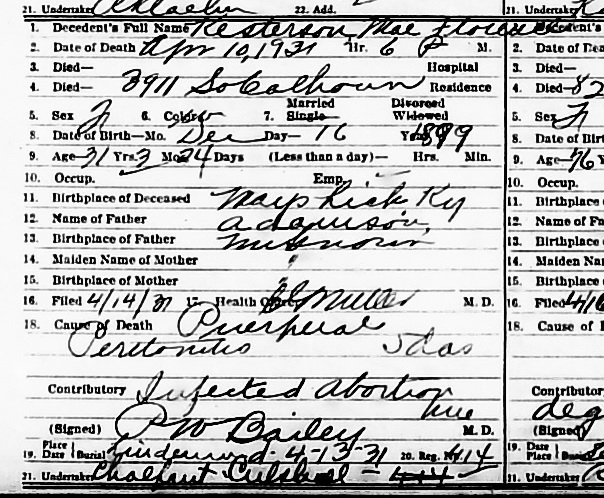 21. Undertaker 22. Add. 21. Undertaker
1. Decedent's Full Name Kesterson Mae Florence
2. Date of Death Apr 10, 1931 Hr. 6 P M. 2. Date of Dea
3. Died— Hospital 3. Died—
4. Died— 3911 So Calhoun Residence 4. Died— 82
5. Sex F 6. Color W 7. Married Single Divorced Widowed 5. Sex F
8. Date of Birth—Mo. Dec Day— 16 Year 1899 8. Date of Birt
9. Age— 31 Yrs. 3 Mos. 24 Days (Less than a day)— Hrs. Min. 9. Age— 76 Y
10. Occup. Emp. 10. Occup.
11. Birthplace of Deceased Mays Lick Ky 11. Birthplace o
12. Name of Father Adamson, 12. Name of Fa
13. Birthplace of Father Unknown 13. Birthplace o
14. Maiden Name of Mother " 14. Maiden Nam
15. Birthplace of Mother 15. Birthplace o
16. Filed 4/14/31 17. Health Officer Miller M. D. 16. Filed 4/1
18. Cause of Death Puerperal 18. Cause of I
Peritonitis 5 das
Contributory Infected Abortion Contributor
(Signed) P W Bailey M. D. (Signed)
19. Place Date Burial Lindenwood 4-13-31 20. Reg. No. 414 19. Place Date
21. Undertaker Chalfant 21. Undertaker